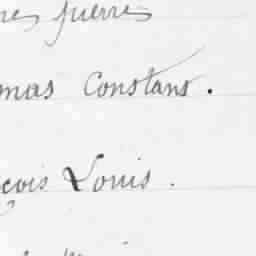 res pierres
mas Constans.
çois Louis.